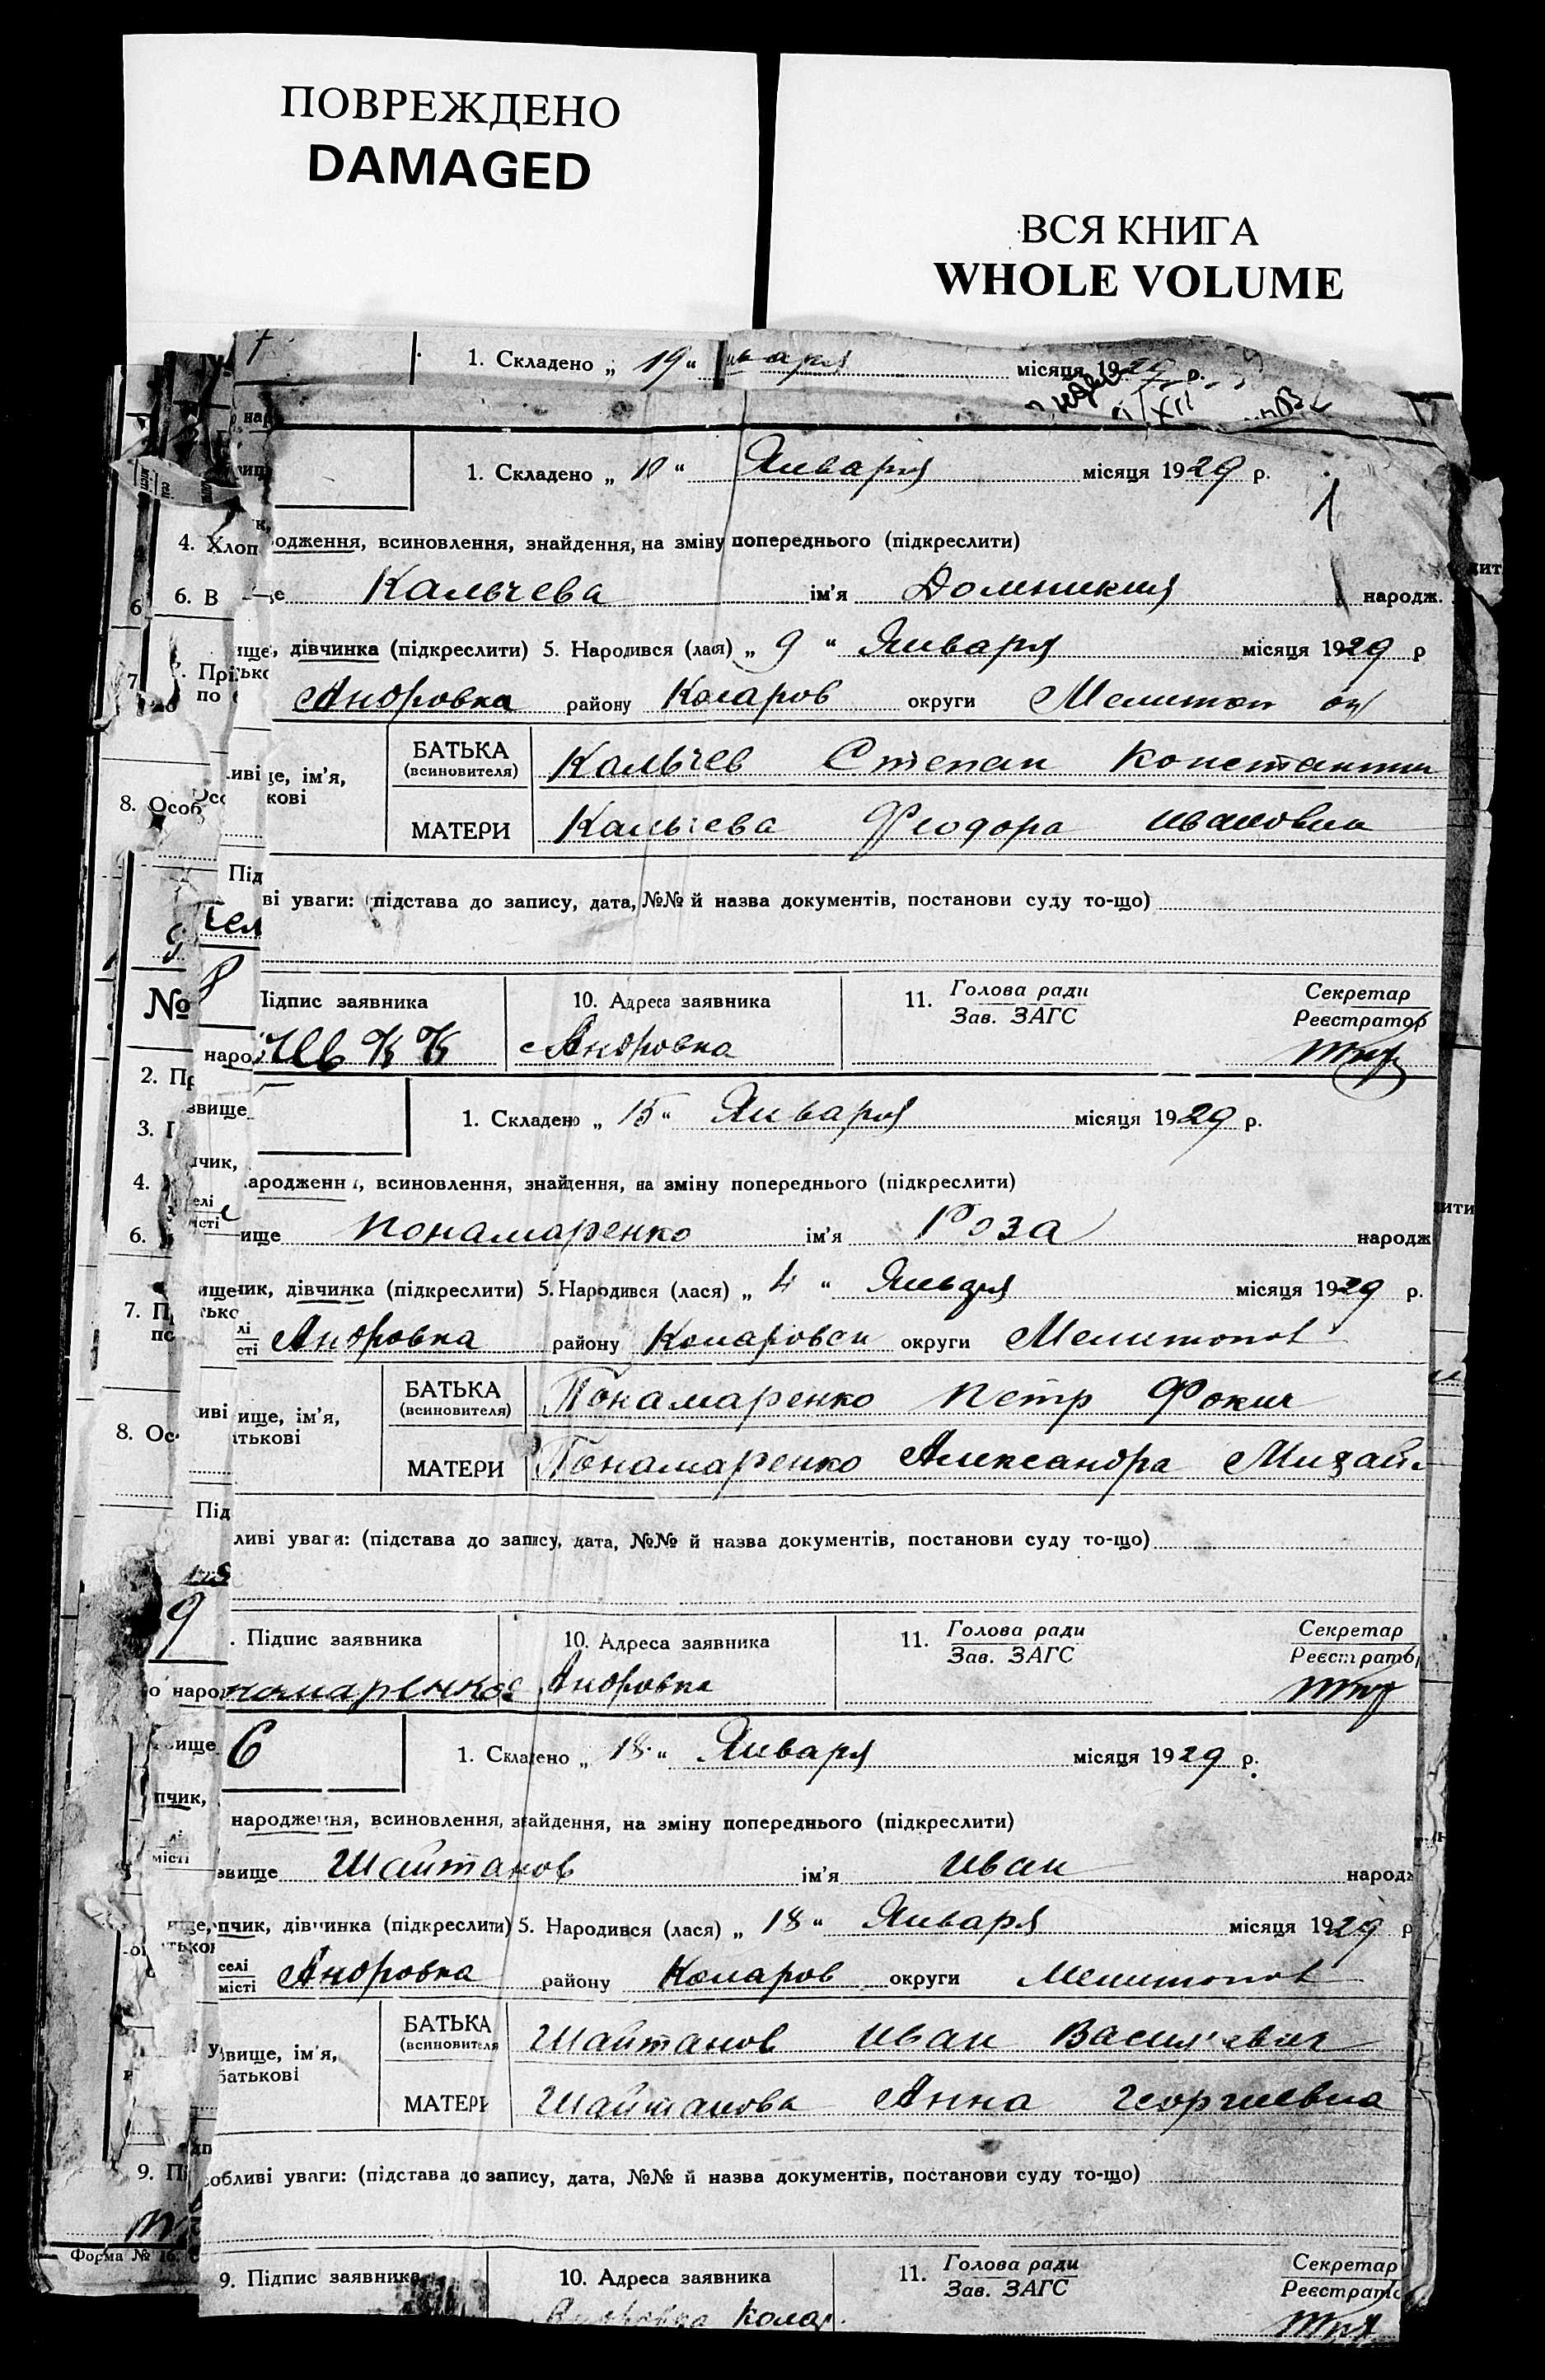 ПОВРЕЖДЕНО
DAMAGED
ВСЯ КНИГА
WHOLE VOLUME
1. Складено „ 19 “ января місяця 1929 р.
1. Складено „ 10 “ Января місяця 1929 р.
1
одження, всиновлення, знайдення, на зміну попереднього (підкреслити)
4. Хлоп
6. В
Кальчева ім’я Домникия народж.
ище, дівчинка (підкреслити) 5. Народився (лася) „ 9 “ Января місяця 1929 р
Андровка району Коларов округи Мелитоп
ще, ім’я,
кові
БАТЬКА
(всиновителя)
Кальчев Степан Константин
МАТЕРИ Кальчева Феодора Ивановна
8. Особ
Під
ві уваги: (підстава до запису, дата, №№ й назва документів, постанови суду то-що)
№
Підпис заявника 10. Адреса заявника 11. Голова ради
Зав. ЗАГС
Секретар
Реєстратор
Андровка
наро
2. Пр
звище
3. П
1. Складено „ 15 “ Января місяця 1929 р.
чик,
4.
ародження, всиновлення, знайдення, на зміну попереднього (підкреслити)
6.
ище Пономаренко ім’я Роза народж
чик, дівчинка (підкреслити) 5. Народився (лася) „ 4 “ місяця 1929 р.
7. П
лі
сті
Андровка району Коларовск округи Мелитопол
ище, ім’я,
атькові
БАТЬКА
(всиновителя)
Понамаренко Петр Фокич
МАТЕРИ Понамаренко Александра Михайл
8. Ос
Під
ливі уваги: (підстава до запису, дата, №№ й назва документів, постанови суду то-що)
9
. Підпис заявника 10. Адреса заявника 11. Голова ради
Зав. ЗАГС
Секретар
Реєстратор
номаренко Андровка
наро
6
1. Складено „ 18 “ Января місяця 1929 р.
пчик,
народження, всиновлення, знайдення, на зміну попереднього (підкреслити)
звище Шайтанов ім’я Иван народж
пчик, дівчинка (підкреслити) 5. Народився (лася) „ 18 “ Января місяця 1929 р
селі
місті
Андровка району Коларов округи Мелитопол
звище, ім’я,
батькові
БАТЬКА
(всиновителя
Шайтанов Иван Васильевич
МАТЕРИ Шайтанова Анна Георгиевна
9. П
собливі уваги: (підстава до запису, дата, №№ й назва документів, постанови суду то-що)
Форма № 16.
9. Підпис заявника 10. Адреса заявника 11. Голова ради
Зав. ЗАГС
Секретар
Реєстрато
Андровка Колар.